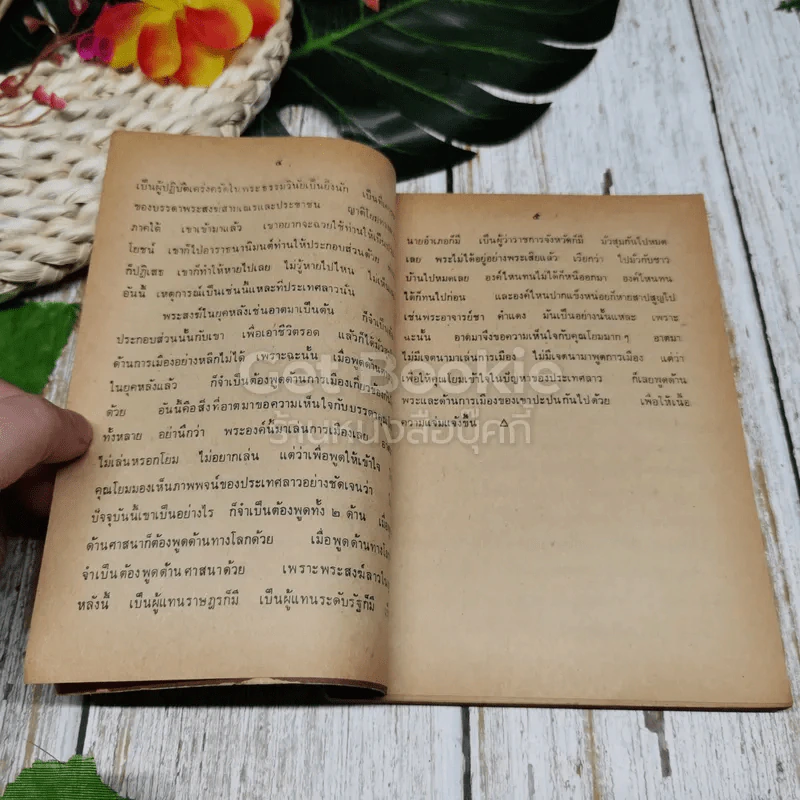 ๔
เป็นผู้ปฏิบัติเคร่งครัดในพระธรรมวินัยเป็นยิ่งนัก เป็นที่
ของบรรดาพระสงฆ์สามเณรและประชาชน ญาติโยมทาง
ภาคใต้ เขาเข้ามาแล้ว เขาอยากจะฉวยใช้ท่านให้เป็น
โยชน์ เขาก็ไปอาราธนานิมนต์ท่านให้ประกอบส่วนด้วย
ก็ปฏิเสธ เขาก็ทำให้หายไปเลย ไม่รู้หายไปไหน ไม่เห็น
อันนี้ เหตุการณ์เป็นเช่นนี้แหละที่ประเทศลาวนั้น
พระสงฆ์ในยุคหลังเช่นอาตมาเป็นต้น ก็จำเป็น
ประกอบส่วนนั้นกับเขา เพื่อเอาชีวิตรอด แล้วก็ได้
ด้านการเมืองอย่างหลีกไม่ได้ เพราะฉะนั้น เมื่อพูดด้าน
ในยุคหลังแล้ว ก็จำเป็นต้องพูดด้านการเมืองเกี่ยว
ด้วย อันนี้คือสิ่งที่อาตมาขอความเห็นใจกับบรรดา
ทั้งหลาย อย่านึกว่า พระองค์นี้มาเล่นการเมืองเลย
ไม่เล่นหรอกโยม ไม่อยากเล่น แต่ว่าเพื่อพูดให้เข้าใจ
คุณโยมมองเห็นภาพพจน์ของประเทศลาวอย่างชัดเจนว่า
ปัจจุบันนี้เขาเป็นอย่างไร ก็จำเป็นต้องพูดทั้ง ๒ ด้าน
ด้านศาสนาก็ต้องพูดด้านทางโลกด้วย เมื่อพูดด้านทาง
จำเป็นต้องพูดด้านศาสนาด้วย เพราะพระสงฆ์ลาว
หลังนี้ เป็นผู้แทนราษฎรก็มี เป็นผู้แทนระดับรัฐก็มี
๕
นายอำเภอก็มี เป็นผู้ว่าราชการจังหวัดก็มี มั่วสุมกันไปหมด
เลย พระไม่ได้อยู่อย่างพระเสียแล้ว เรียกว่า ไปมั่วกับชาว
บ้านไปหมดเลย องค์ไหนทนไม่ได้ก็หนีออกมา องค์ไหนทน
ได้ก็ทนไปก่อน และองค์ไหนปากแข็งหน่อยก็หายสาปสูญไป
เช่นพระอาจารย์ชา คำแดง มันเป็นอย่างนั้นแหละ เพราะ
ฉะนั้น อาตมาจึงขอความเห็นใจกับคุณโยมมาก ๆ อาตมา
ไม่มีเจตนามาเล่นการเมือง ไม่มีเจตนามาพูดการเมือง แต่ว่า
เพื่อให้คุณโยมเข้าใจในปัญหาของประเทศลาว ก็เลยพูดด้าน
พระและด้านการเมืองของเขาปะปนกันไปด้วย เพื่อให้เนื้อ
ความแจ่มแจ้งขึ้น △
Get Bookie
ร้านหนังสือบุ๊คกี้